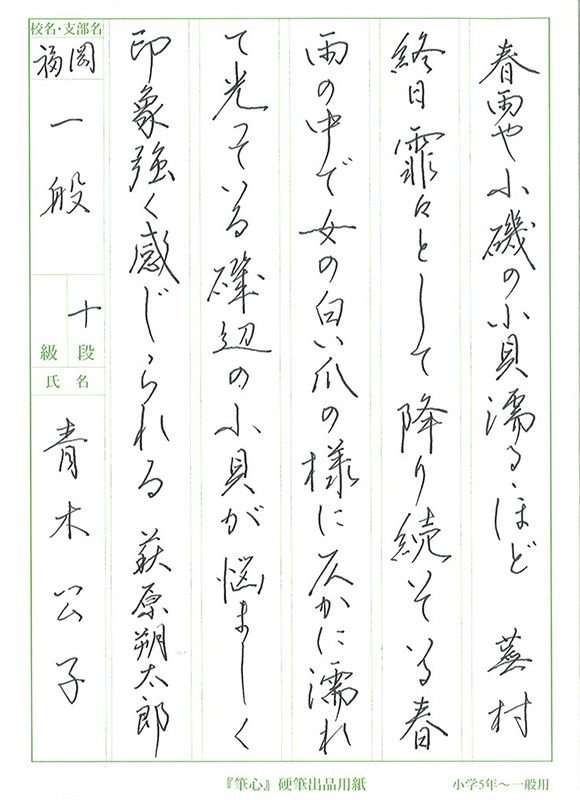 春雨や小磯の小貝濡るほど　蕪村
終日霏々として降り続いている春
雨の中で女の白い爪の様に仄かに濡れ
て光っている磯辺の小貝が悩ましく
印象強く感じられる　萩原朔太郎
校名・支部名
福岡
一般
十
級段
氏名
青木公子
『筆心』硬筆出品用紙
小学5年～一般用